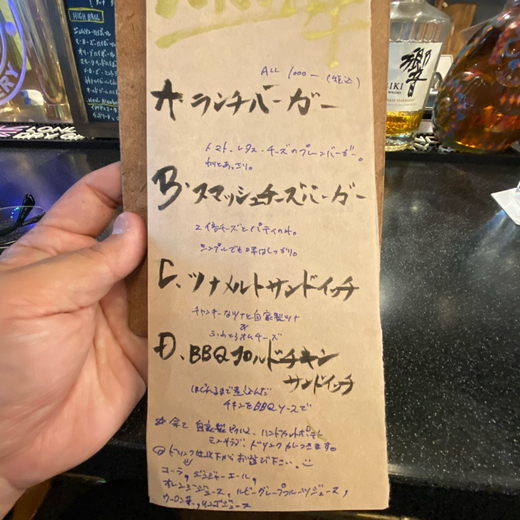 HIGH BALL
ALL 1000ー (税込)
A. ランチバーガー
トマト・レタス・チーズのプレーンバーガー。
わりとあっさり。
B. スマッシュチーズバーガー
2倍チーズとパティのみ。
シンプルでも味はしっかり。
C. ツナメルトサンドイッチ
チャンキーなツナと自家製ツナ
&
とろけるチーズ
D. BBQプルドチキン
サンドイッチ
ほぐれるまで煮込んだ
チキンをBBQソースで
※ 全て 自家製ピクルス、ハンドカットポテト
ミニサラダ、ドリンクがつきます。
ドリンクは以下からお選び下さい。
コーラ, ジンジャーエール,
オレンジジュース, ルビーグレープフルーツジュース,
ウーロン茶, リンゴジュース
響